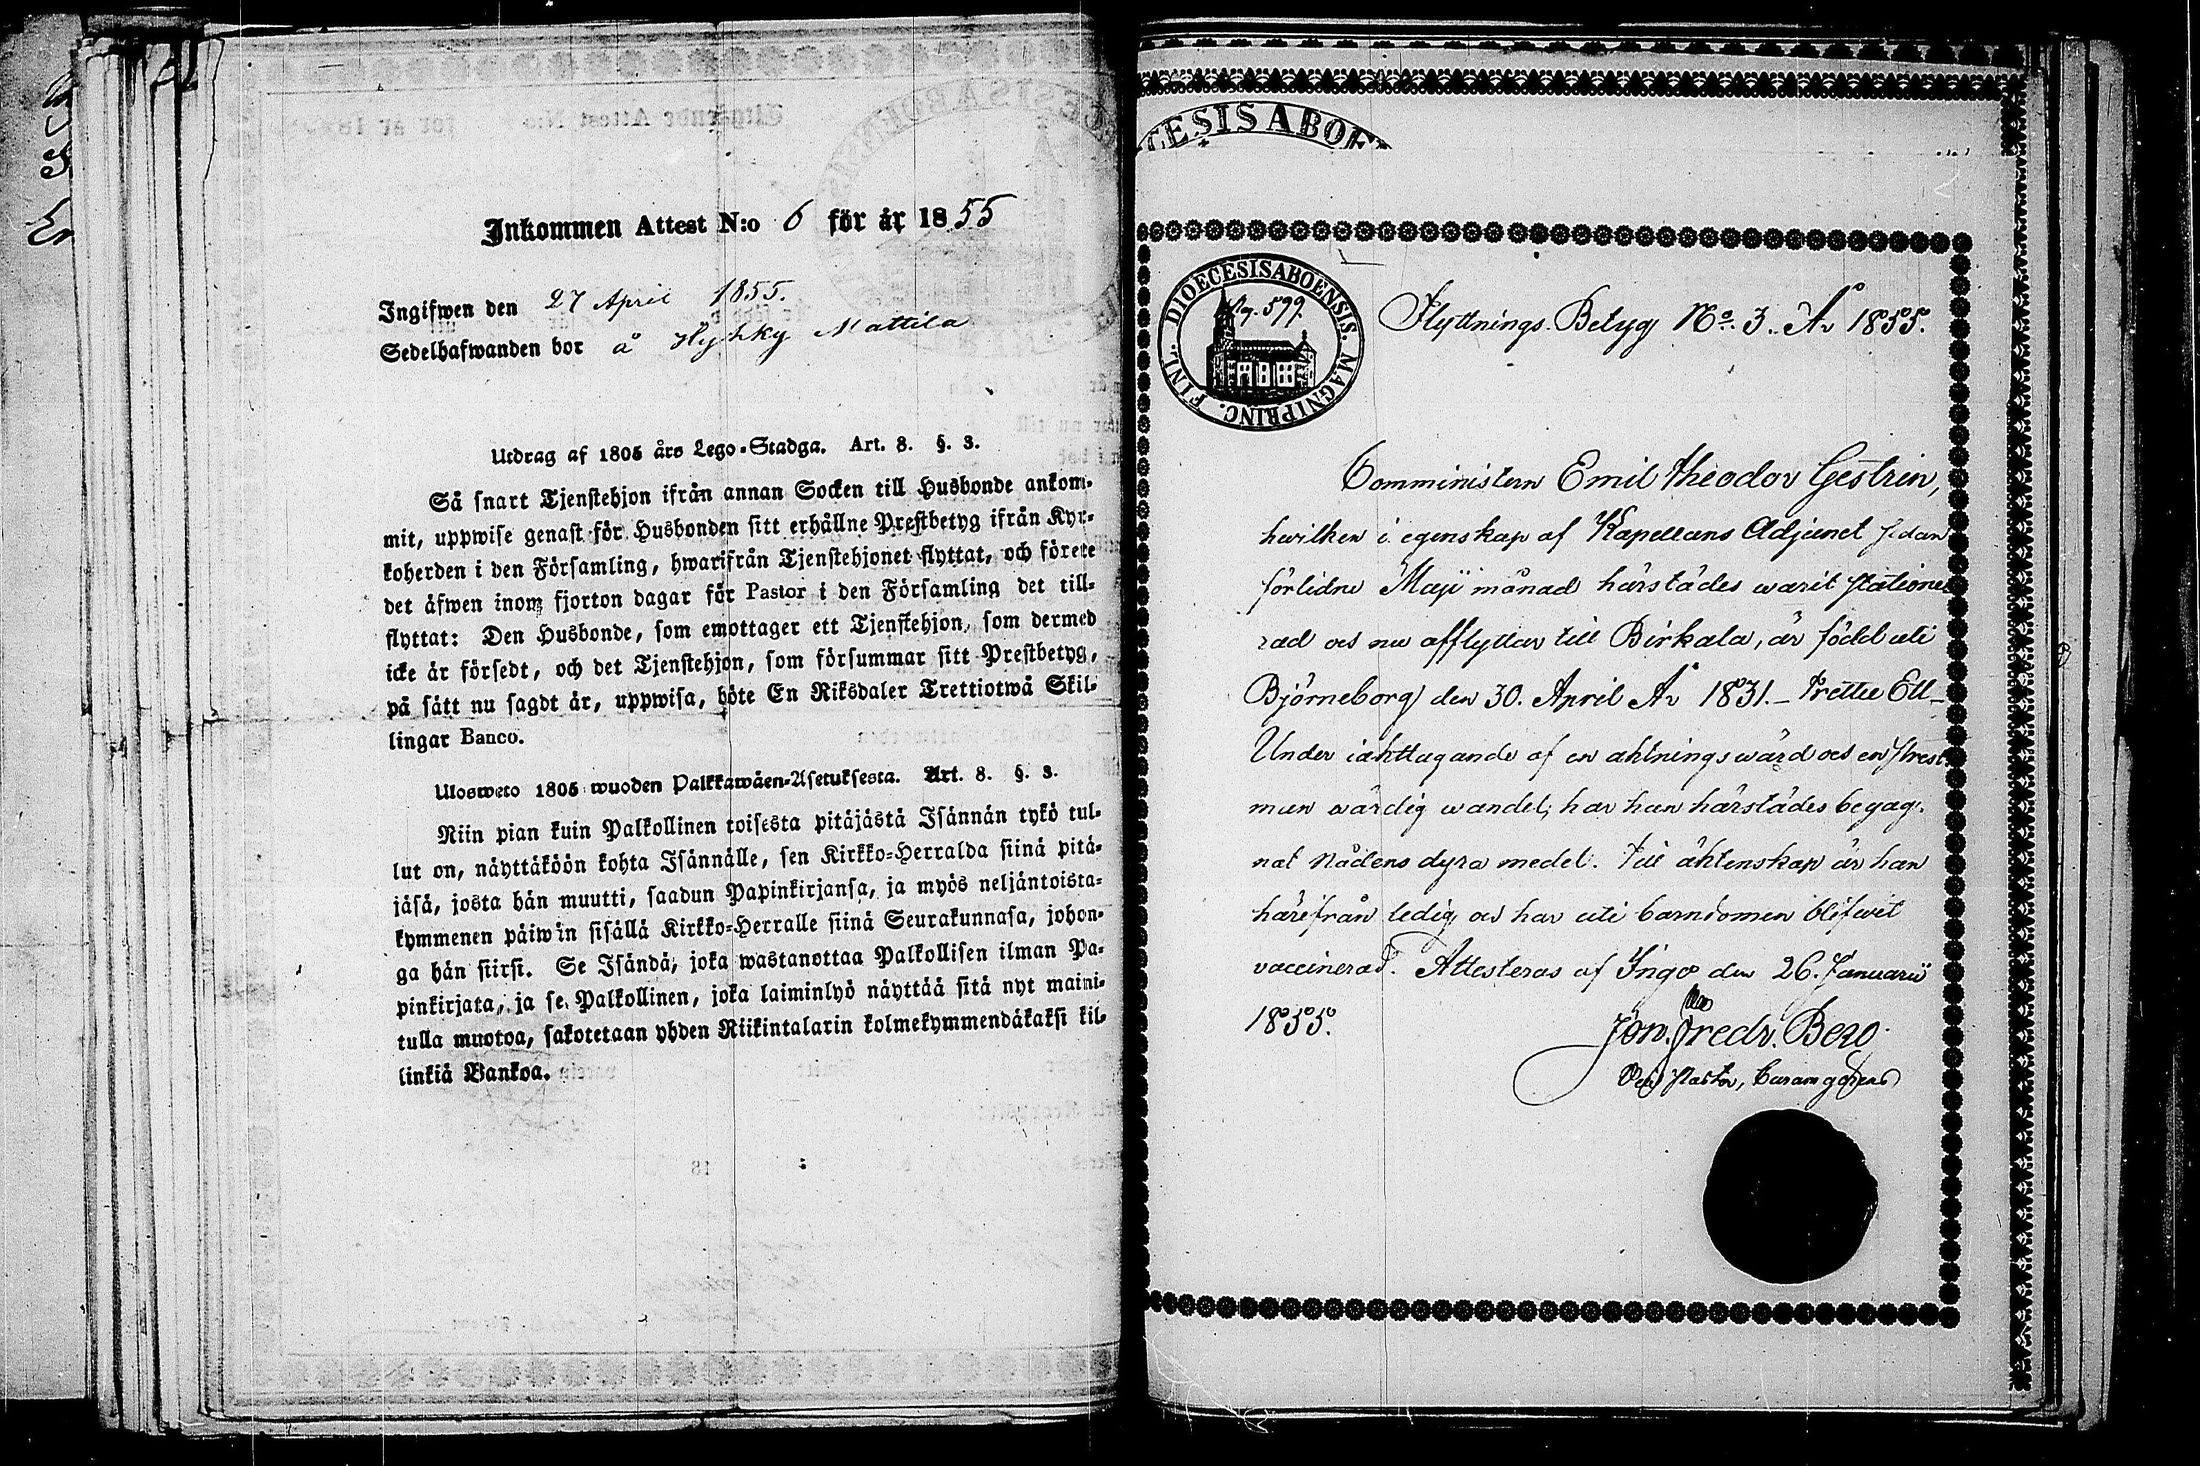 Inkommen Attest N:o 6 för år 1855
Ingifwen den 27 April 1855.
Sedelhafwanden bor å Hyhky Mattila
Utdrag af 1805 års Lego-Stadga. Art. 8. §. 3.
Så snart Tjenstehjon ifrån annan Socken till Husbonde ankom-
mit, uppwise genast för Husbonden sitt erhållne Prestbetyg ifrån Kyr-
koherden i den Församling, hwarifrån Tjenstehjonet flyttat, och förete
det äfwen inom fjorton dagar för Pastor i den Församling det till-
flyttat: Den Husbonde, som emottager ett Tjenstehjon, som dermed
icke är försedt, och det Tjenstehjon, som försummar sitt Prestbetyg,
på sätt nu sagdt är, uppwisa, böte En Riksdaler Trettiotwå Skil-
lingar Banco.
Ulosweto 1805 wuoden Palkkawäen-Asetuksesta. Art. 8. §. 3.
Niin pian kuin Palkollinen toisesta pitäjästä Isännän tykö tul-
lut on, näyttäköön kohta Isännälle, sen Kirkko-Herralda siinä pitä-
jäsä, josta hän muutti, saadun Papinkirjansa, ja myös neljäntoista-
kymmenen päiwän sisällä Kirkko-Herralle siinä Seurakunnasa, johon-
ga hän siirsi. Se Isändä, joka wastanottaa Palkollisen ilman Pa-
pinkirjata, ja se Palkollinen, joka laiminlyö näyttää sitä nyt maini-
tulla muotoa, sakotetaan yhden Riikintalarin kolmekymmendäkaksi kil-
linkiä Bankoa.
CESISABOE
DIOECESIS ABOENSIS. MAGNI PRINC. FINL.
Pag. 599.
Flyttnings-Betyg No. 3. Ar 1855.
Comministern Emil Theodor Gestrin,
hwilken i egenskap af Kapellans Adjunct sedan
förlidne Maji månad härstädes warit statione-
rad och nu afflyttar till Birkala, är född uti
Björneborg den 30. April Ar 1831. – Trettie Ett –
Under iakttagande af en aktnings wärd och en prest-
man wärdig wandel, har han härstädes begag-
nat Nådens dyra medel. Till äktenskap är han
härifrån ledig och har uti barndomen blifwit
vaccinerad. Attesteras af Ingo den 26. Januarii
1855.
Jon. Fredr. Bero.
Past, Curam gerens